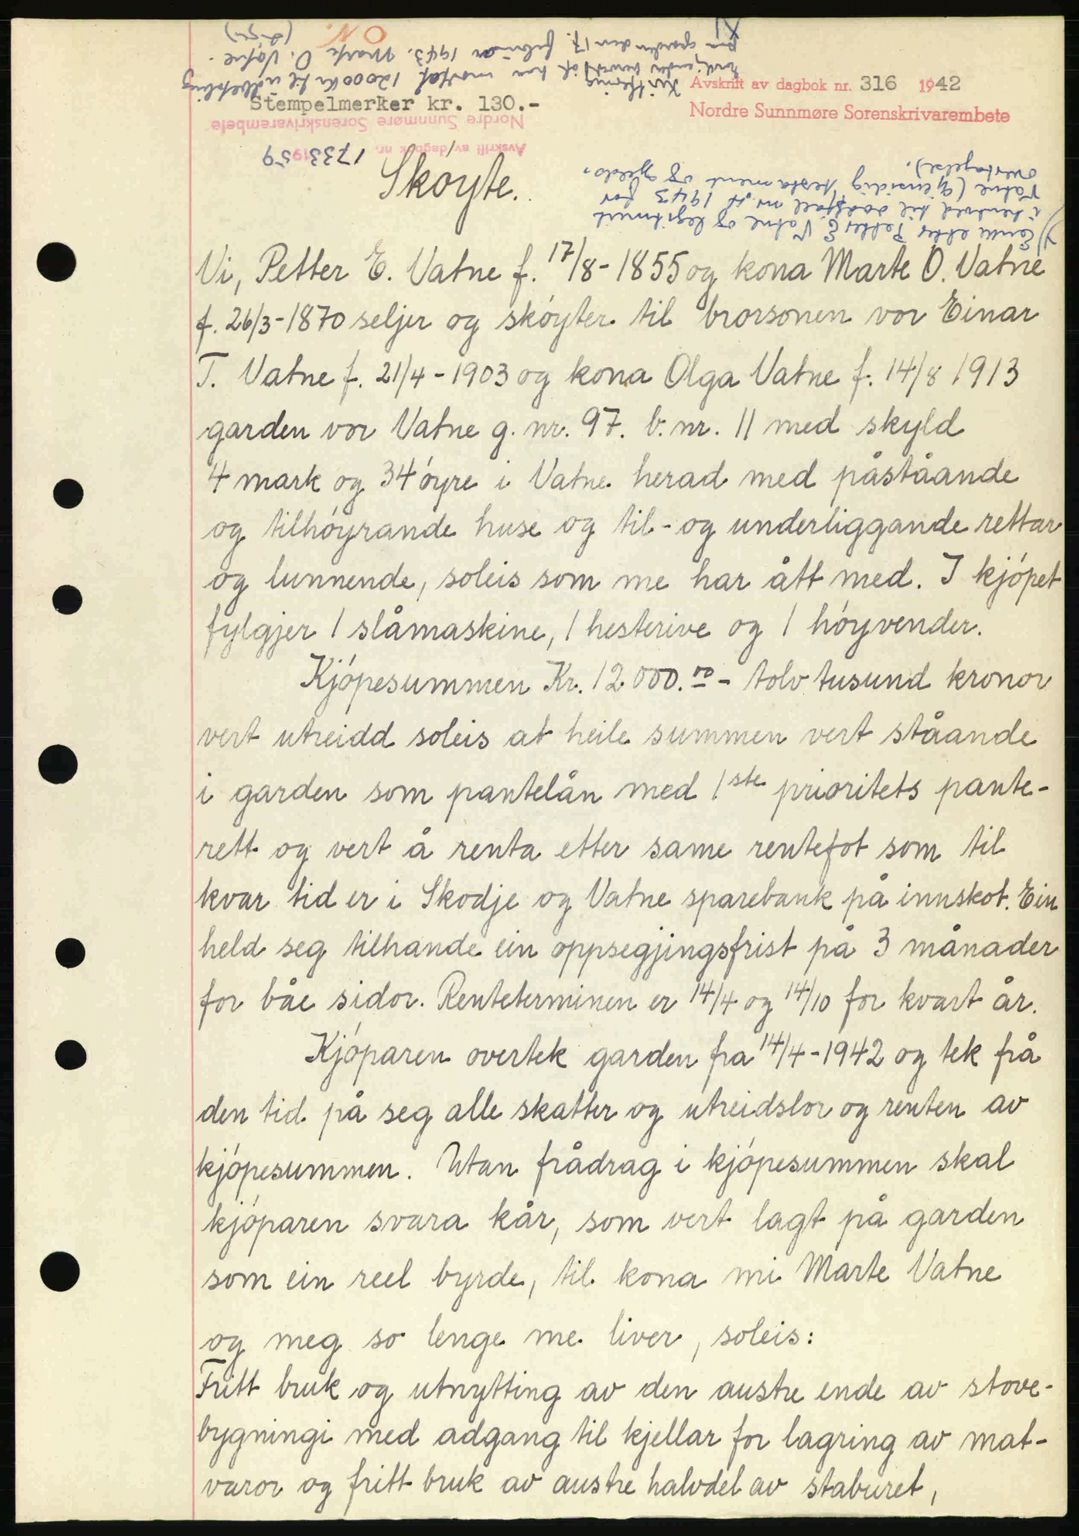 Avskrift av dagbok nr. 316 1942
Nordre Sunnmøre Sorenskrivarembete
Stempelmerker kr. 130.-
Nordre Sunnmøre Sorenskrivarembete
Avskrift av dagbok nr. 1733 1959
Kvittering
12000 kr
februar 1943. Marte O. Vatne.
Enke etter Petter E. Vatne og legitimert
i henhold til dødsfall nr. 1943 for
Vatne (gjensidig testament og gjelds-
overtagelse).
Skøyte.
Vi, Petter E. Vatne f. 17/8-1855 og kona Marte O. Vatne
f. 26/3-1870 seljer og skøyter til brorsonen vor Einar
T. Vatne f. 21/4-1903 og kona Olga Vatne f. 14/8 1913
garden vor Vatne g. nr. 97. b. nr. 11 med skyld
4 mark og 34 øyre i Vatne herad med påståande
og tilhøyrande huse og til- og underliggande rettar
og lunnende, soleis som me har ått med. I kjøpet
fylgjer 1 slåmaskine, 1 hesterive og 1 høyvender.
Kjøpesummen Kr. 12000.00 - tolv tusund kronor
vert utreidd soleis at heile summen vert ståande
i garden som pantelån med 1ste prioritets pante-
rett og vert å renta etter same rentefot som til
kvar tid er i Skodje og Vatne sparebank på innskot. Ein
held seg tilhande ein oppsegjingsfrist på 3 månader
for båe sidor. Renteterminen er 14/4 og 14/10 for kvart år.
Kjøparen overtek garden fra 14/4-1942 og tek frå
den tid på seg alle skatter og utreidslor og renten av
kjøpesummen. Utan frådrag i kjøpesummen skal
kjøparen svara kår, som vert lagt på garden
som ein reel byrde, til kona mi Marte Vatne
og meg so lenge me liver, soleis:
Fritt bruk og utnytting av den austre ende av stove-
bygningi med adgang til kjellar for lagring av mat-
varor og fritt bruk av austre halvdel av staburet,